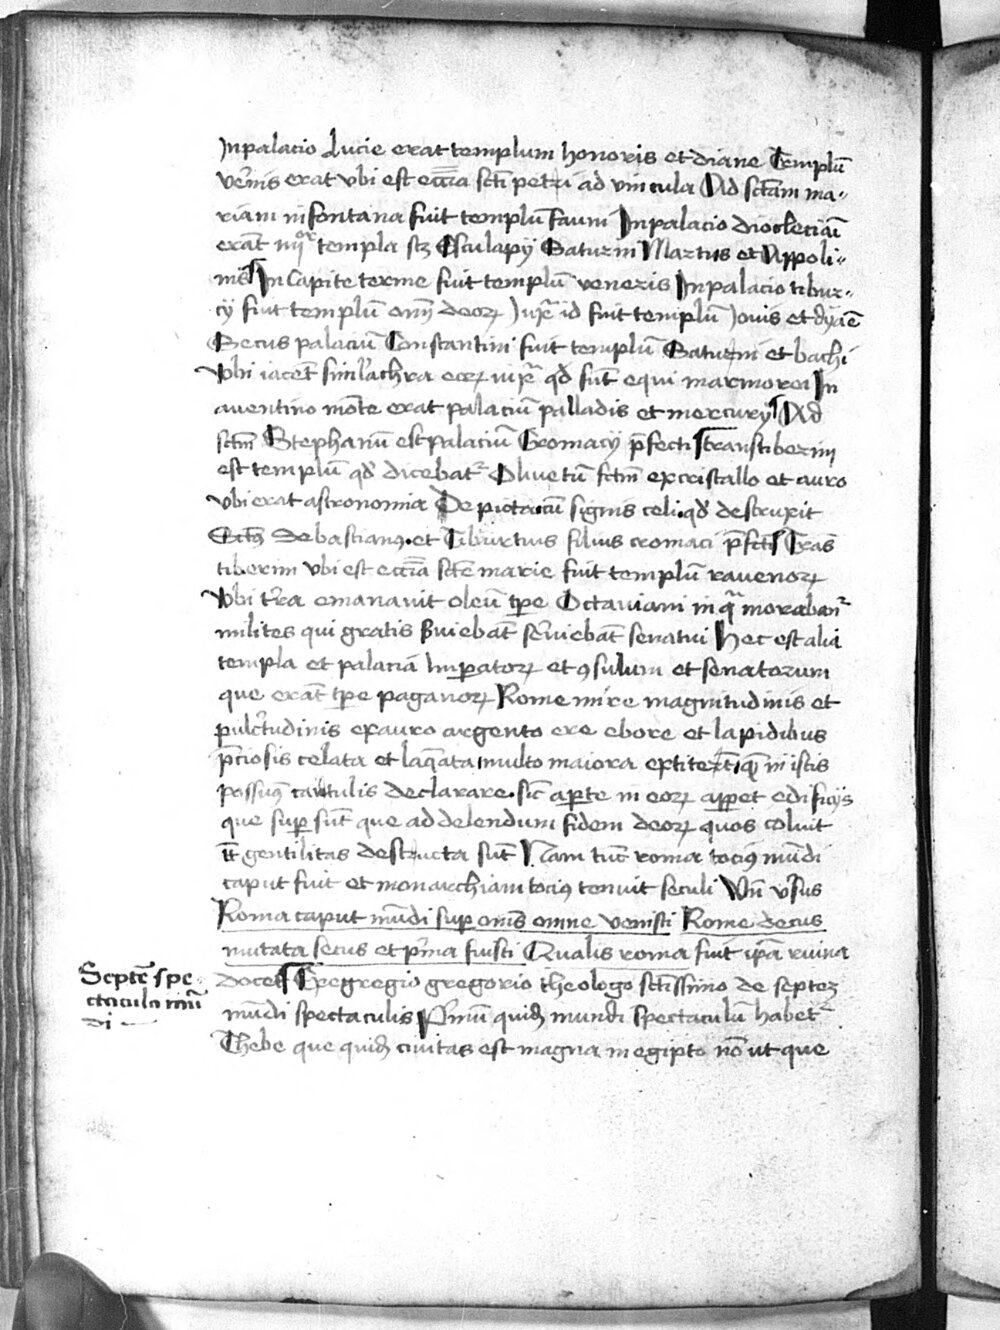 In palacio Lucie erat templum honoris et diane Templū
ven̄is erat vbi est eccīa scti petri ad vincula Ad sctam ma-
riam in fontana fuit templū Fauni In palacio diocleciāi
erāt iiijor templa scz Esculapij Saturni Martis et Appoli-
nis In Capite terme fuit templū veneris In palacio tibur-
cij fuit templū om̄ deorꝝ Iuxͣ id fuit templū Iouis et dyāe
Secus palaciū Constantini fuit templū Saturni et bachi
Vbi iacēt simil'achra eorꝝ iuxͣ qd' sūt equi marmorei In
auentino mōte erat palaciū palladis et mercurij Ad
sctm̄ Stephanū est palaciū Cromacij p̄fecti transtiberini
est templū qd' dicebatᷣ Oliuetū fctm̄ ex cristallo et auro
vbi erat astronomia De picta cū signis celi qd' destruxit
Sctꝰ Sebastianꝰ et Tiburtius filius cromaci p̄fecti Trās
tiberim vbi est eccīa scte marie fuit templū rauenorꝝ
Vbi t'ra emanauit oleū tp̄e Octauiani in qͣ morabanᷣ
milites qui gratis s'uiebāt senatui Hec est alia
templa et palacia Imperatorꝝ et ꝯsulum et senatorum
que erāt tp̄e paganorꝝ Rome mire magnitudinis et
pulc'tudinis ex auro argento ere ebore et lapidibus
p̄ciosis celata et multo maiora extiterūt qͣꝫ in istis
possumꝰ cartulis declarare sic̄ aperte in eorꝝ apparet edificijs
que supersūt que ad delendum fidem deorꝝ quos coluit
gentilitas destructa sūt Nam tūc roma tociꝰ mūdi
caput fuit et monarchiam tociꝰ tenuit seculi Vn̄ v'sus
Roma caput mūdi super om̄is omne venisti Rome decus
mutata secus et p'ma fuisti Qualis roma fuit ip̄a ruina
docet Ex egregio gregorio theologo sctissimo de septeꝫ
mūdi spectaculis P'mū quideꝫ mundi spectaculū habetᷣ
Thebe que quideꝫ ciuitas est magna in egipto nō ut que
Septē spe-
ctacula mū
di